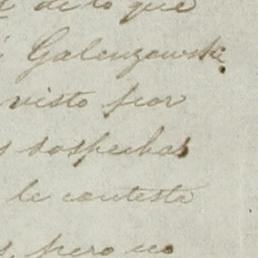 de lo que
Galenzowski
visto por
sospechas
le contesta
pero no